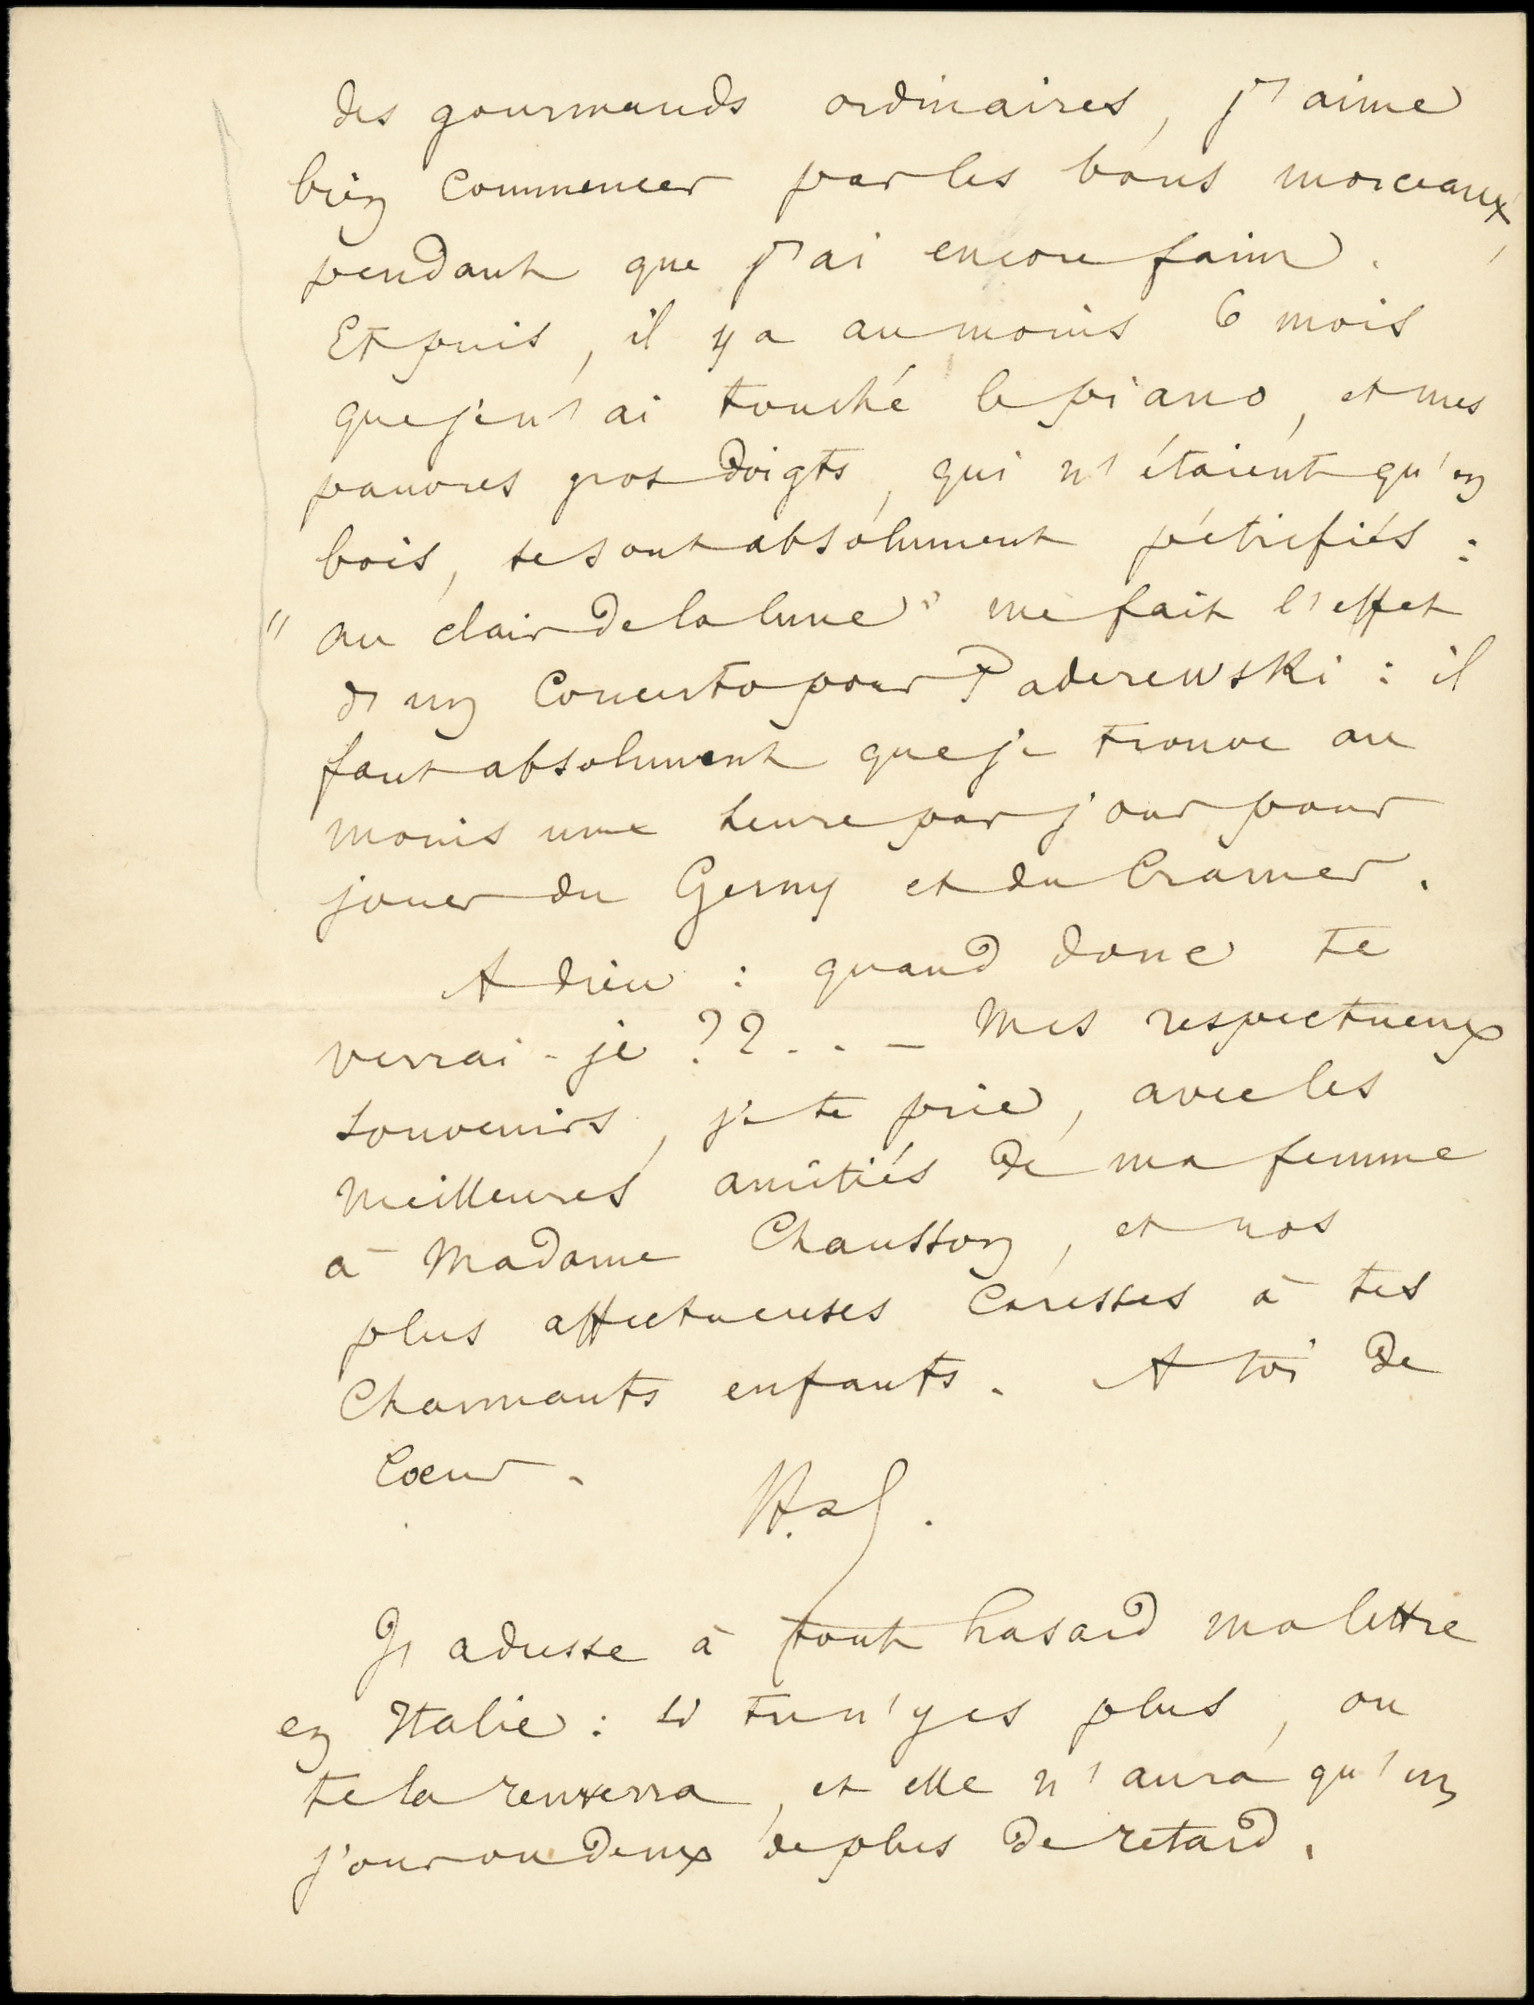 des gourmands ordinaires, j'aime
bien commencer par les bons morceaux,
pendant que j'ai encore faim.
Et puis, il y a au moins 6 mois
que je n'ai touché le piano, et mes
pauvres gros doigts, qui n'étaient qu'en
bois, se sont absolument pétrifiés :
"au clair de la lune" me fait l'effet
d'un Concerto pour Paderewski : il
faut absolument que je trouve au
moins une heure par jour pour
jouer du Czerny et du Cramer.
Adieu : quand donc te
verrai-je ??.. — Mes respectueux
souvenirs, je te prie, avec les
meilleures amitiés de ma femme
à Madame Chausson, et nos
plus affectueuses caresses à tes
charmants enfants. A toi de
coeur.
J'adresse à tout hasard ma lettre
en Italie : si tu n'y es plus, on
te la renverra, et elle n'aura qu'un
jour ou deux de plus de retard.